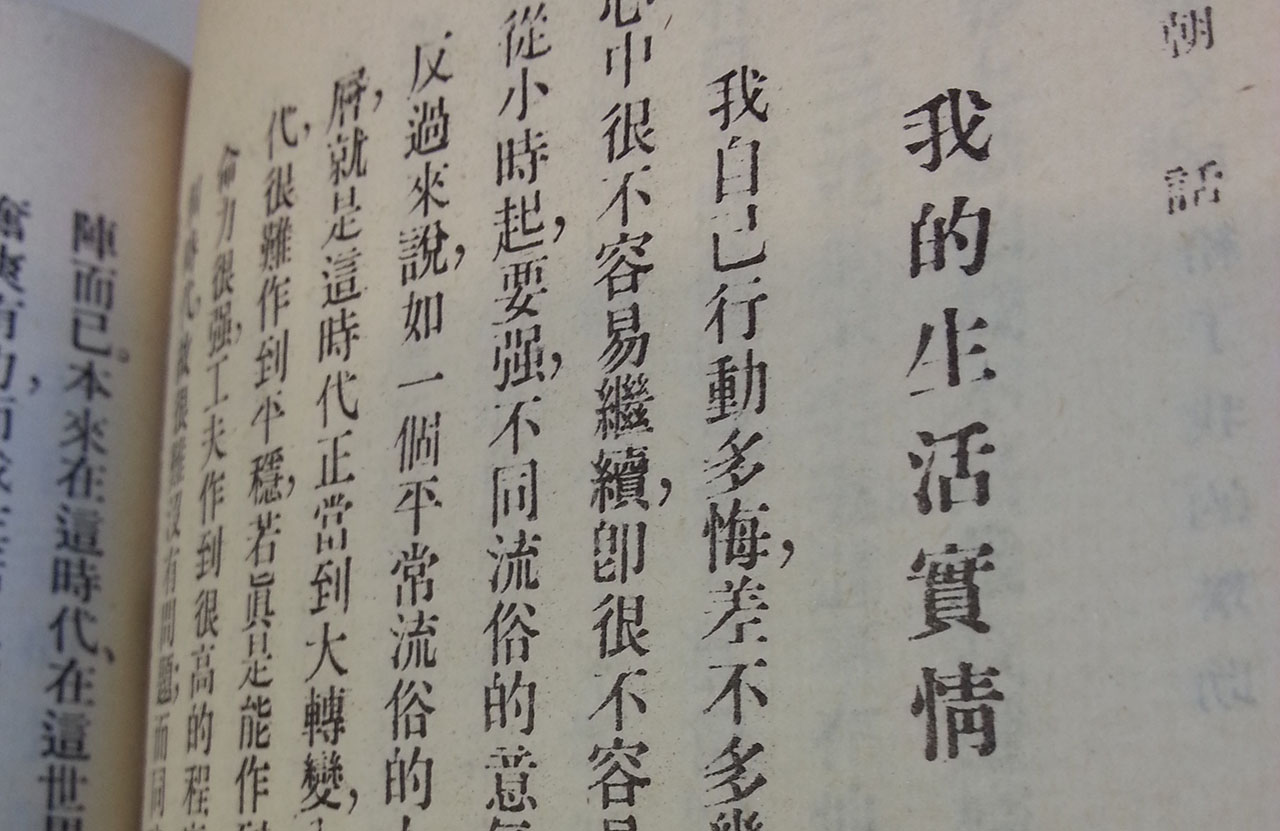 朝話
我的生活實情
我自己行動多悔，差不多幾
心中很不容易繼續，卽很不容易
從小時起，要强，不同流俗的意氣
反過來說，如一個平常流俗的
層，就是這時代正當到大轉變，
代，很難作到平穩，若眞是能作到
命力很强，工夫作到很高的程
時代，故很難沒有問題；而同
陣而已。本來在這時代、在這世界
奮爽有力，而